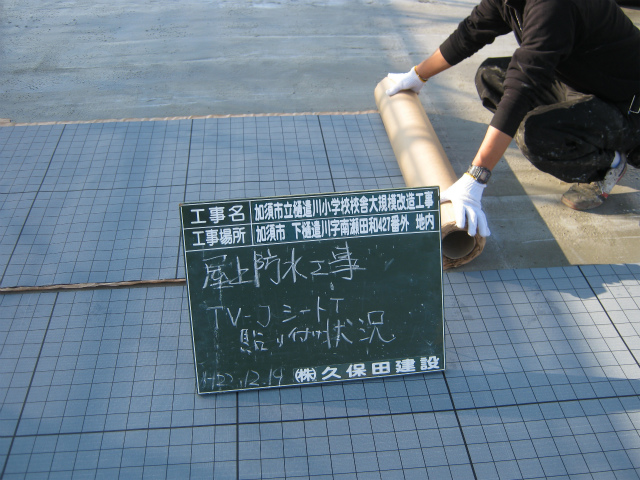 工事名 加須市立樋遣川小学校校舎大規模改造工事
工事場所 加須市 下樋遣川字南瀬田和427番外 地内
屋上防水工事
TV-Jシート
貼り付け状況
H22.12.14
㈱久保田建設